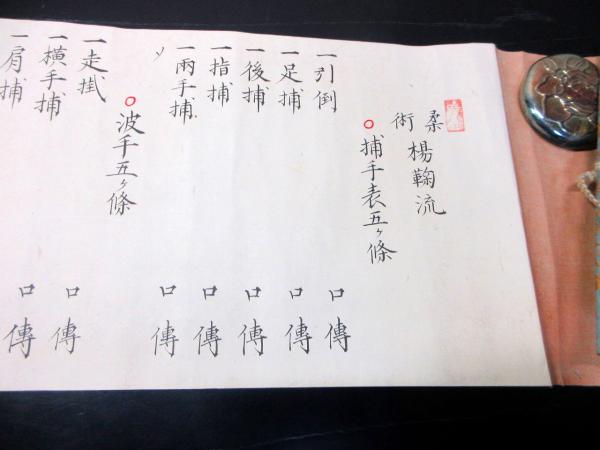 柔術 楊鞠流
捕手表五ヶ條
一引倒 口傳
一足捕 口傳
一後捕 口傳
一指捕 口傳
一兩手捕 口傳
〆
波手五ヶ條
一走掛 口傳
一橫手捕 口傳
一肩捕